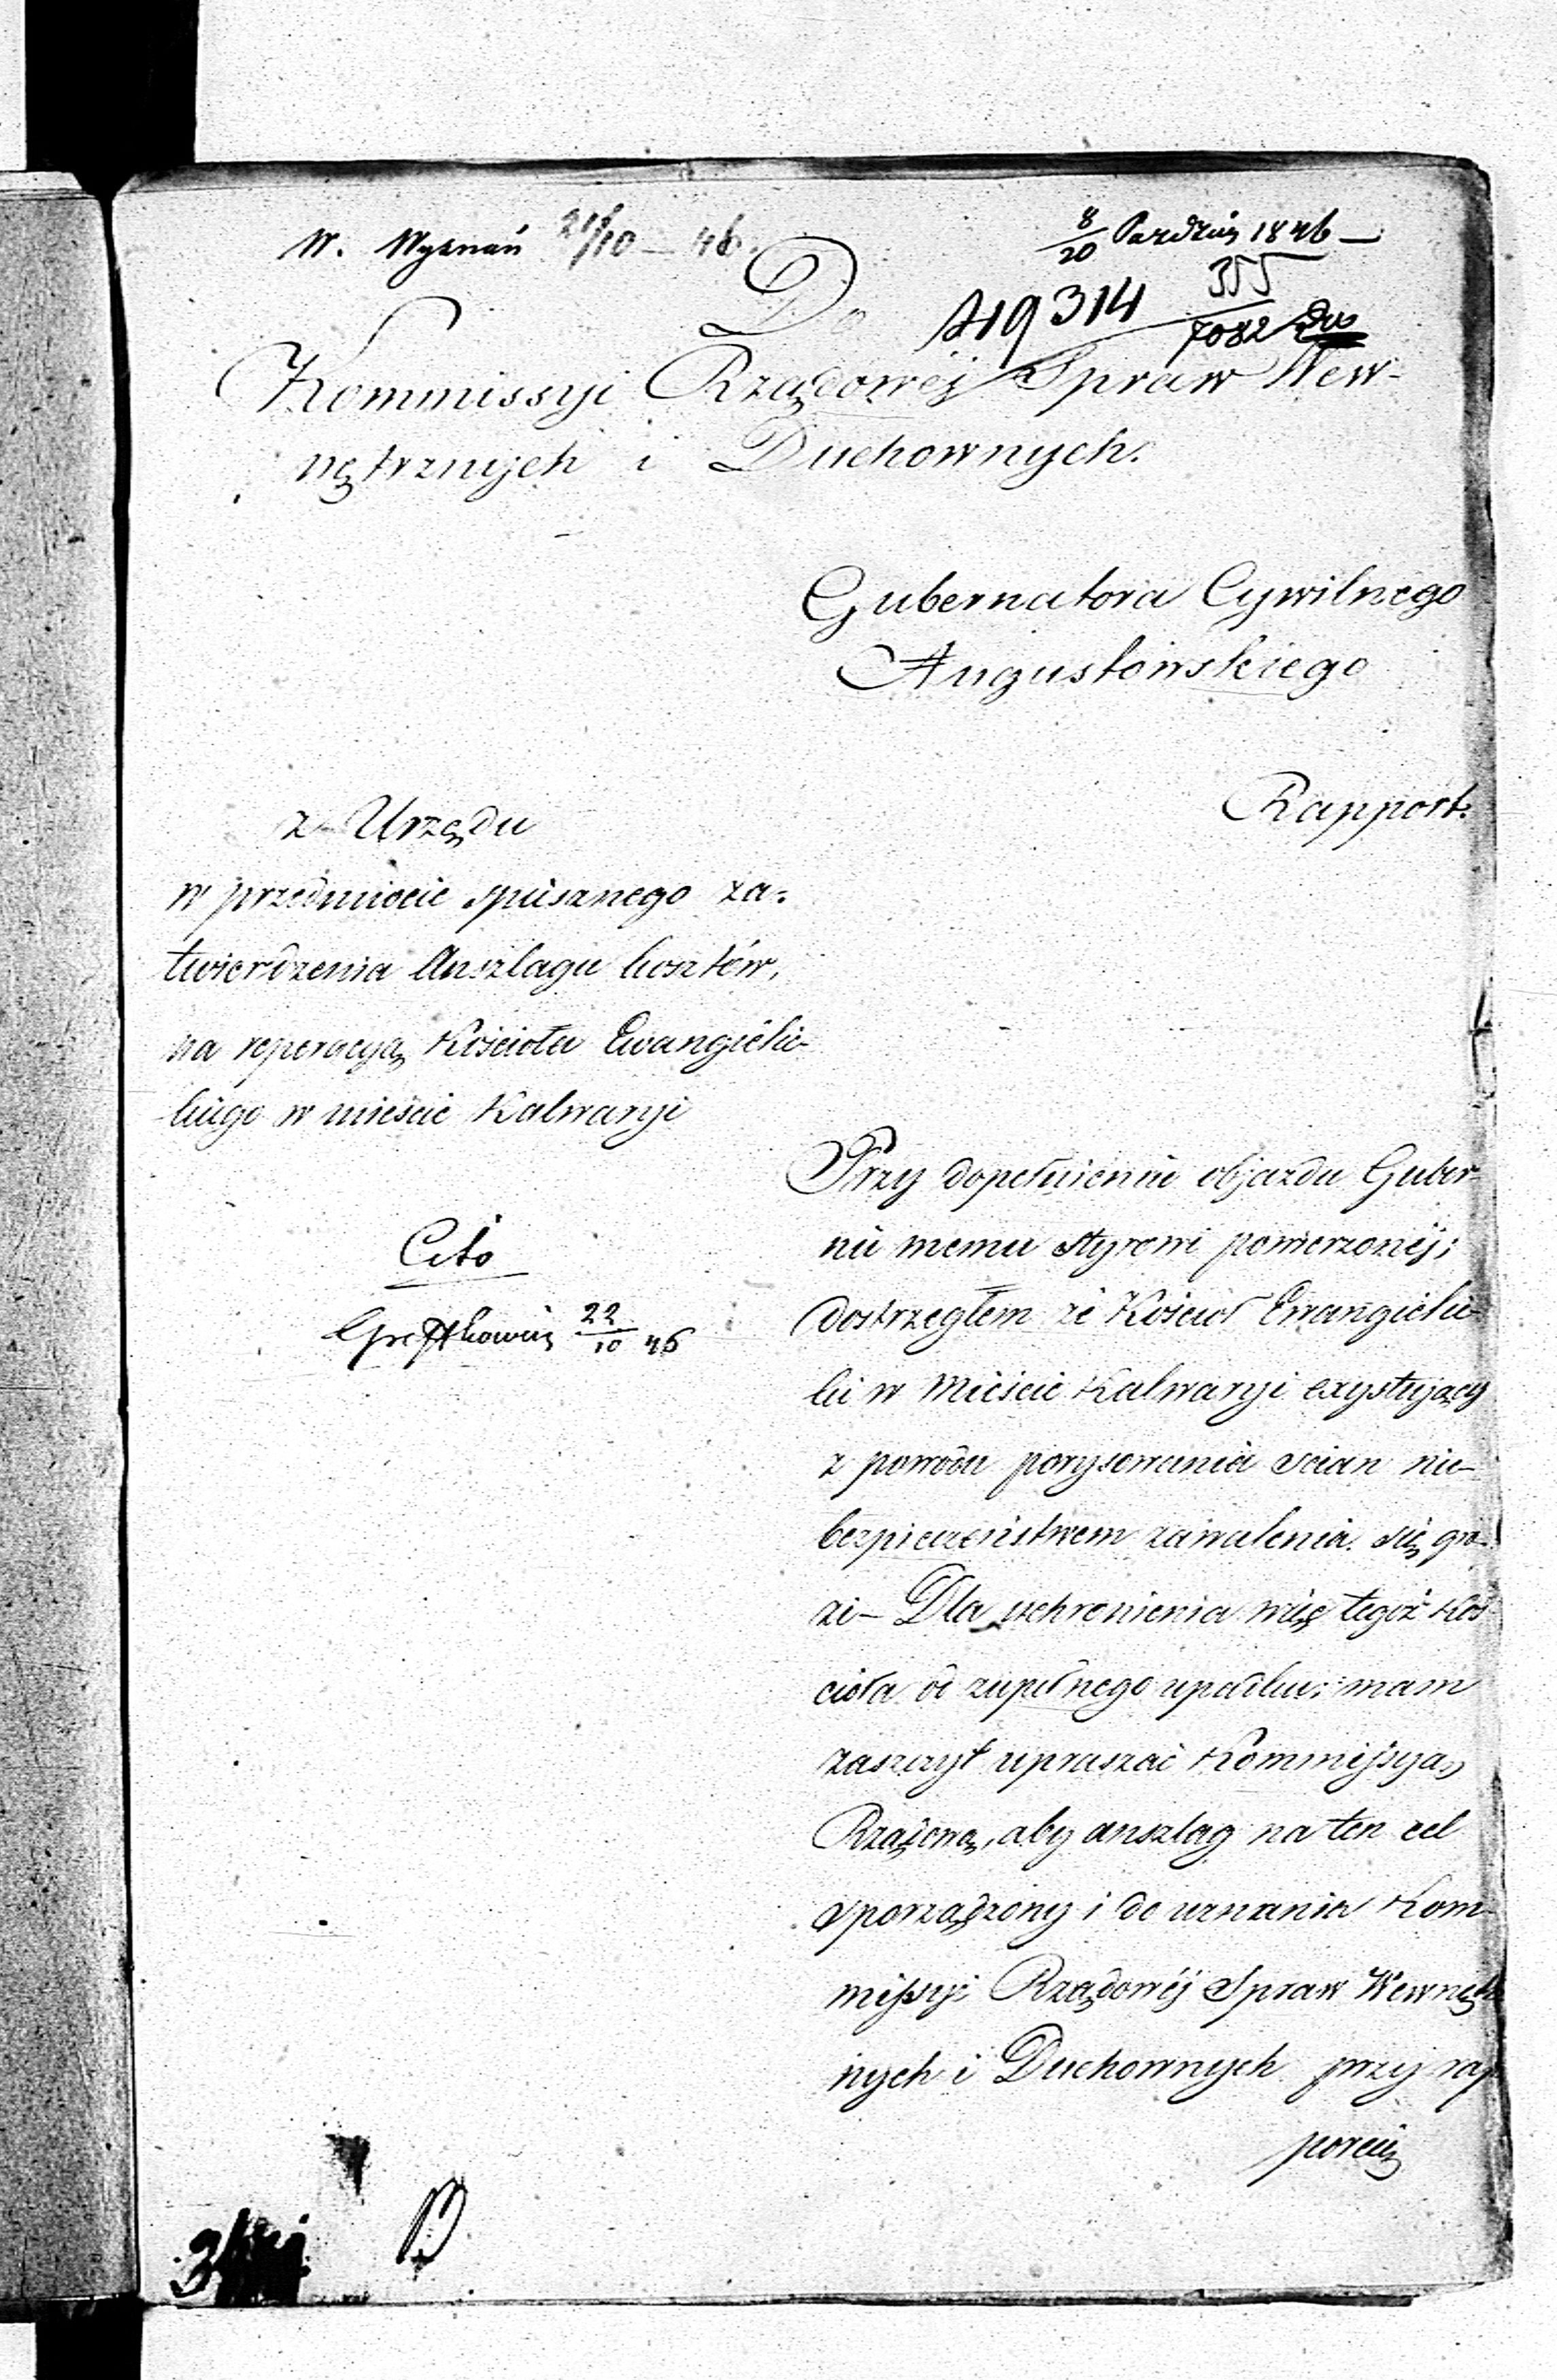 W. Wyznań 21/10 – 46.
8/20 Paźdźier 1846 –
Do
19314 355/7082
Kommissyi Rządowéj Spraw Wew-
nętrznych i Duchownych.
Gubernatora Cywilnego
Augustowskiego
Rapport.
z Urzędu
w przedmiocie spiesznego za-
twierdzenia Anszlagu kosztów,
na reperacyą Kościoła Ewangielic-
kiego w mieście Kalwaryi
Cito
22/10 46
Przy dopełnieniu objazdu Guber-
nii memu sterowi powierzonéj;
dostrzegłem że Kościoł Ewangielic-
ki w Mieście Kalwaryi exystujący
z powodu porysowania scian nie-
bezpieczeństwem zawalenia się gro-
zi – Dla uchronienia więc tegoż Koś-
cioła od zupełnego upadku; mam
zaszczyt upraszać Kommissyą
Rządową, aby anszlag na ten cel
sporządzony i do uznania Kom-
missyi Rządowéj Spraw Wewnętrz
nych i Duchownych przy rap
porcie